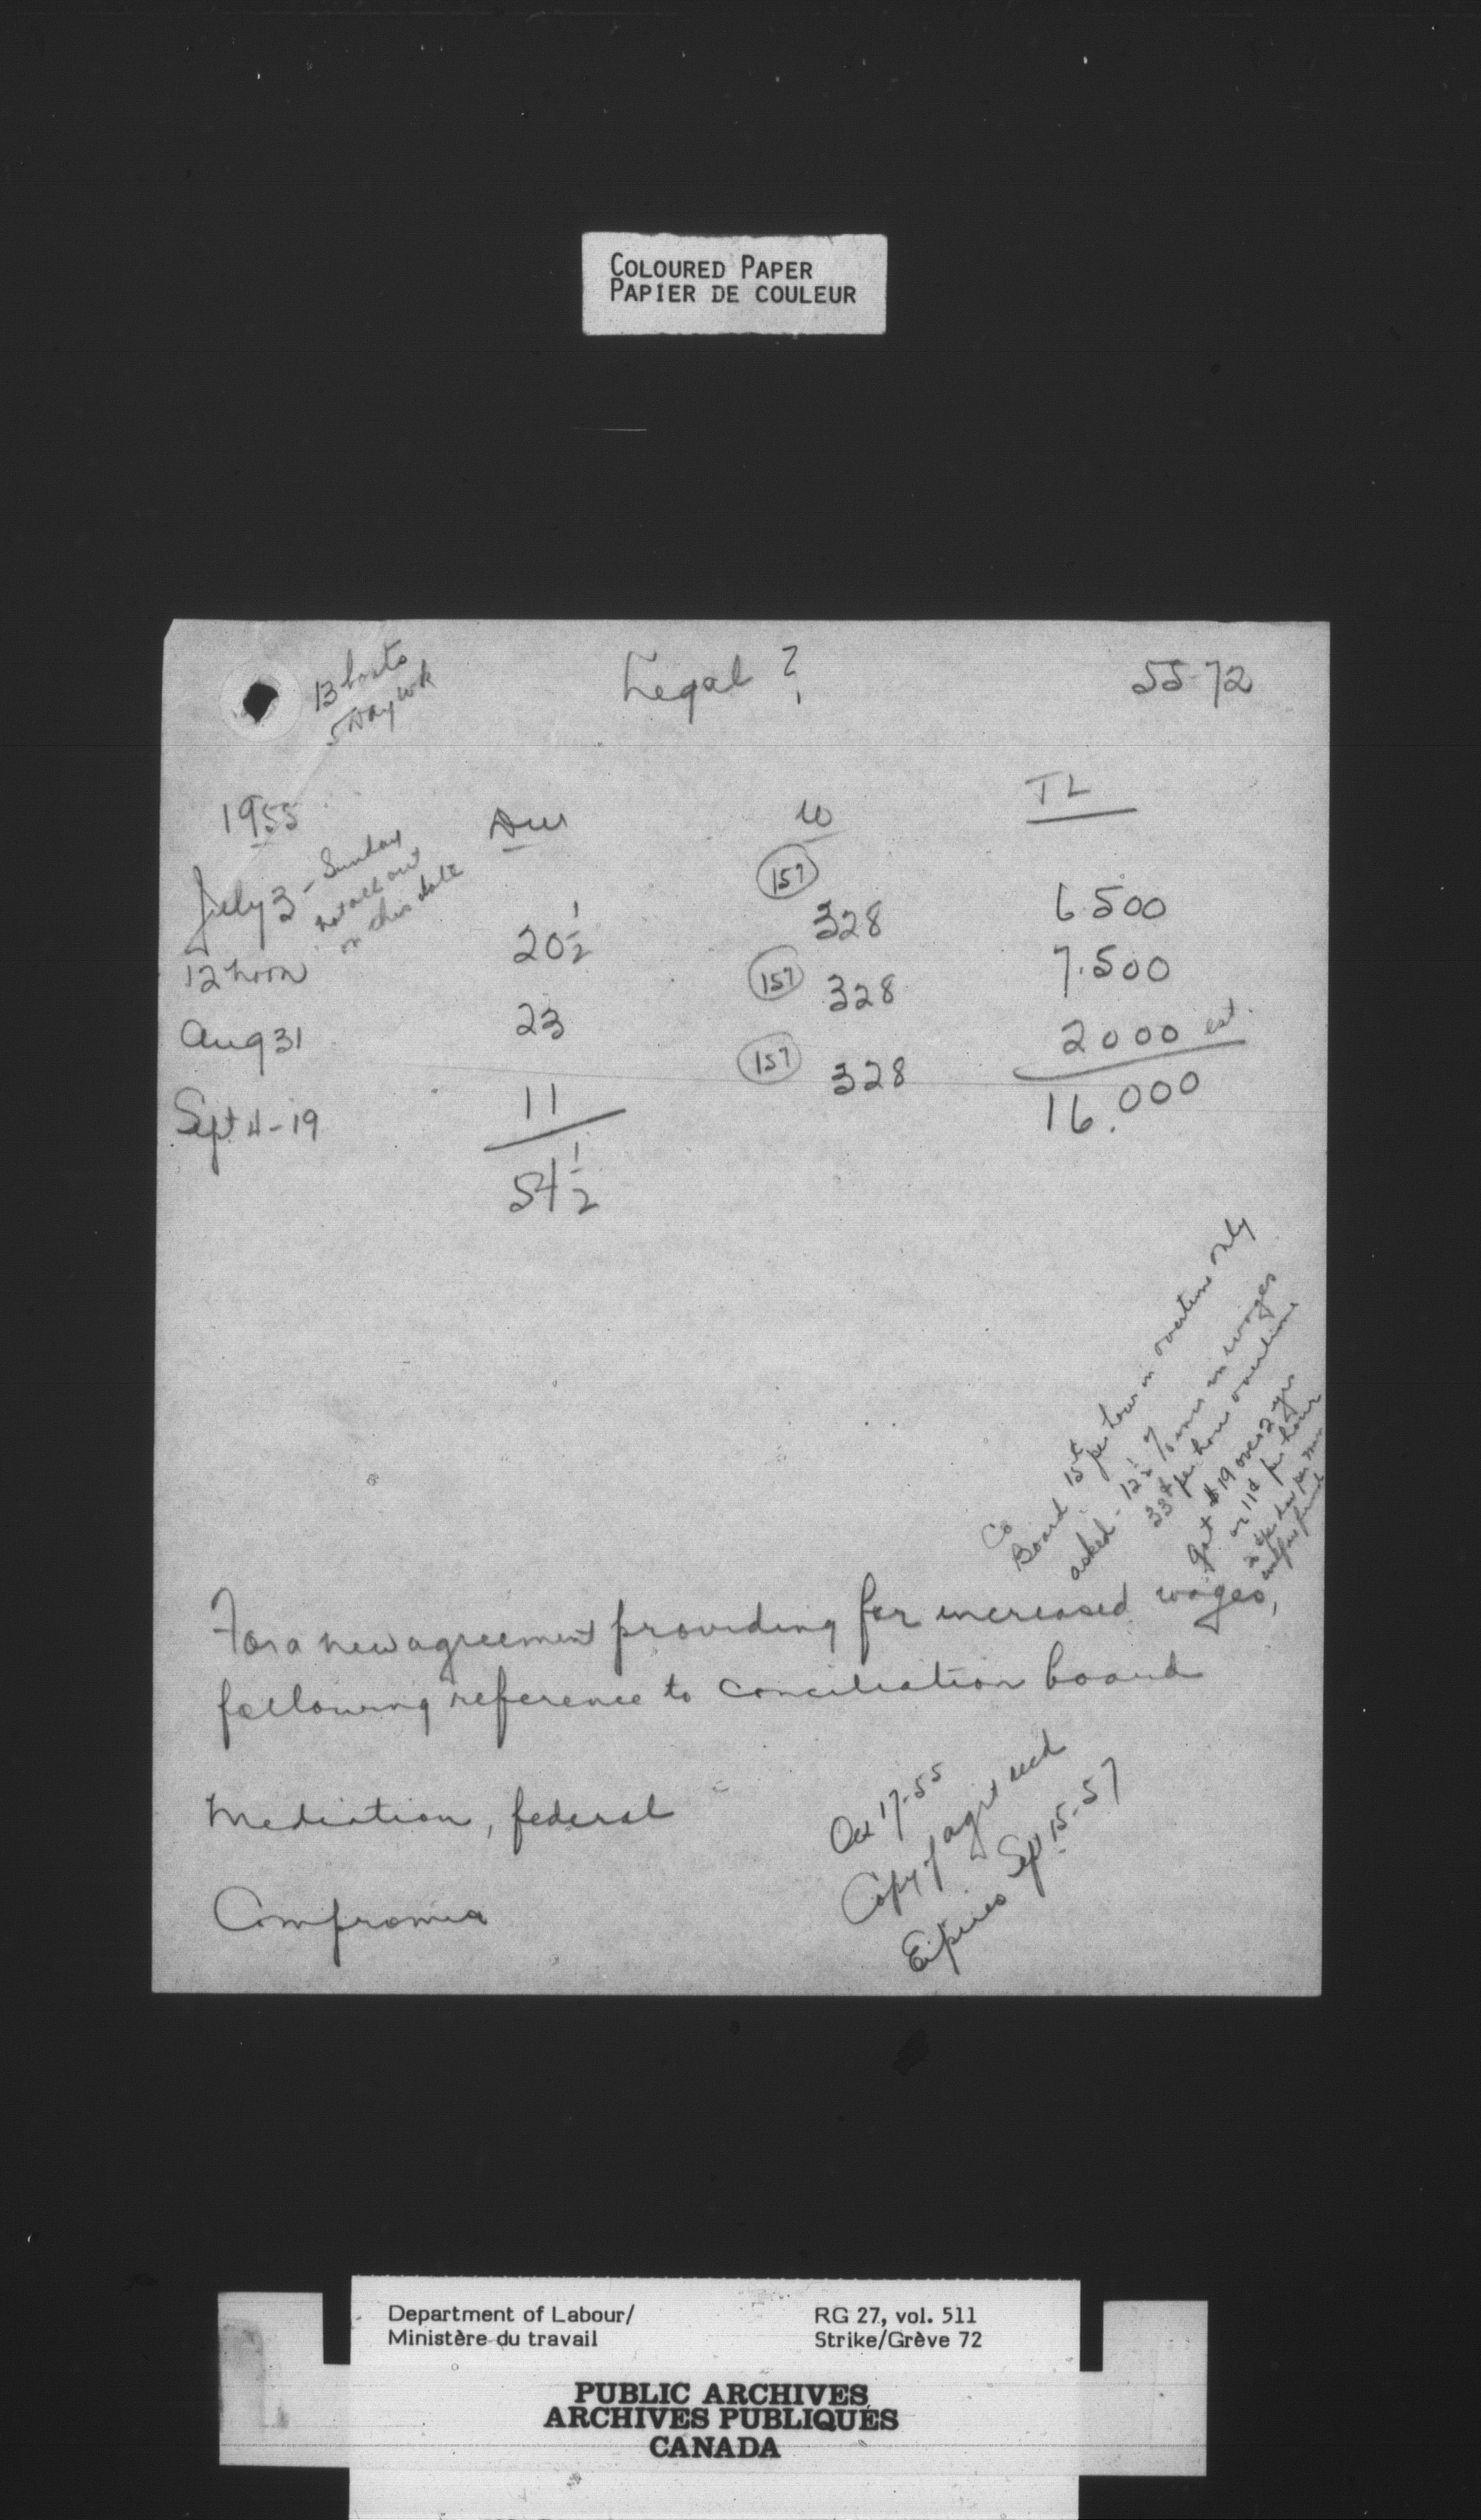 COLOURED PAPER
PAPIER DE COULEUR
13 boats
5 Day wk
Legal ?
55-72
1955
Dur
W
TL
July 3 - Sunday
not all out
on this date
12 noon
20 1/2
(157)
328
6.500
Aug 31
23
(157)
328
7.500
Sept 4-19
11
(157)
328
2000 est.
54 1/2
16.000
Co
Board 15¢ per hour in overtime only
asked - 12 1/2 % incr in wages
33¢ per hour overtime
Got $19 over 2 yrs
or 11¢ per hour
per man
welfare fund
For a new agreement providing for increased wages,
following reference to conciliation board
Mediation, federal
Compromise
Oct 17-55
Copy of agrt recd
Expires Sept 15-57
Department of Labour/
Ministère du travail
RG 27, vol. 511
Strike/Grève 72
PUBLIC ARCHIVES
ARCHIVES PUBLIQUES
CANADA